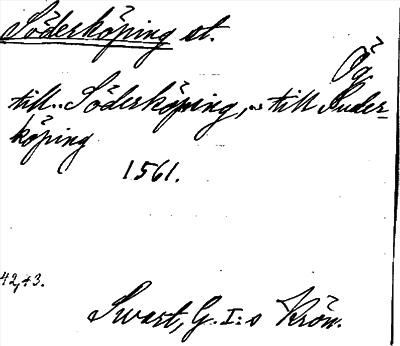 Söderköping st.
Ög.
till.. Söderköping, .. till Suder-
köping
1561.
42,43.
Swart, G. I:s Krön.